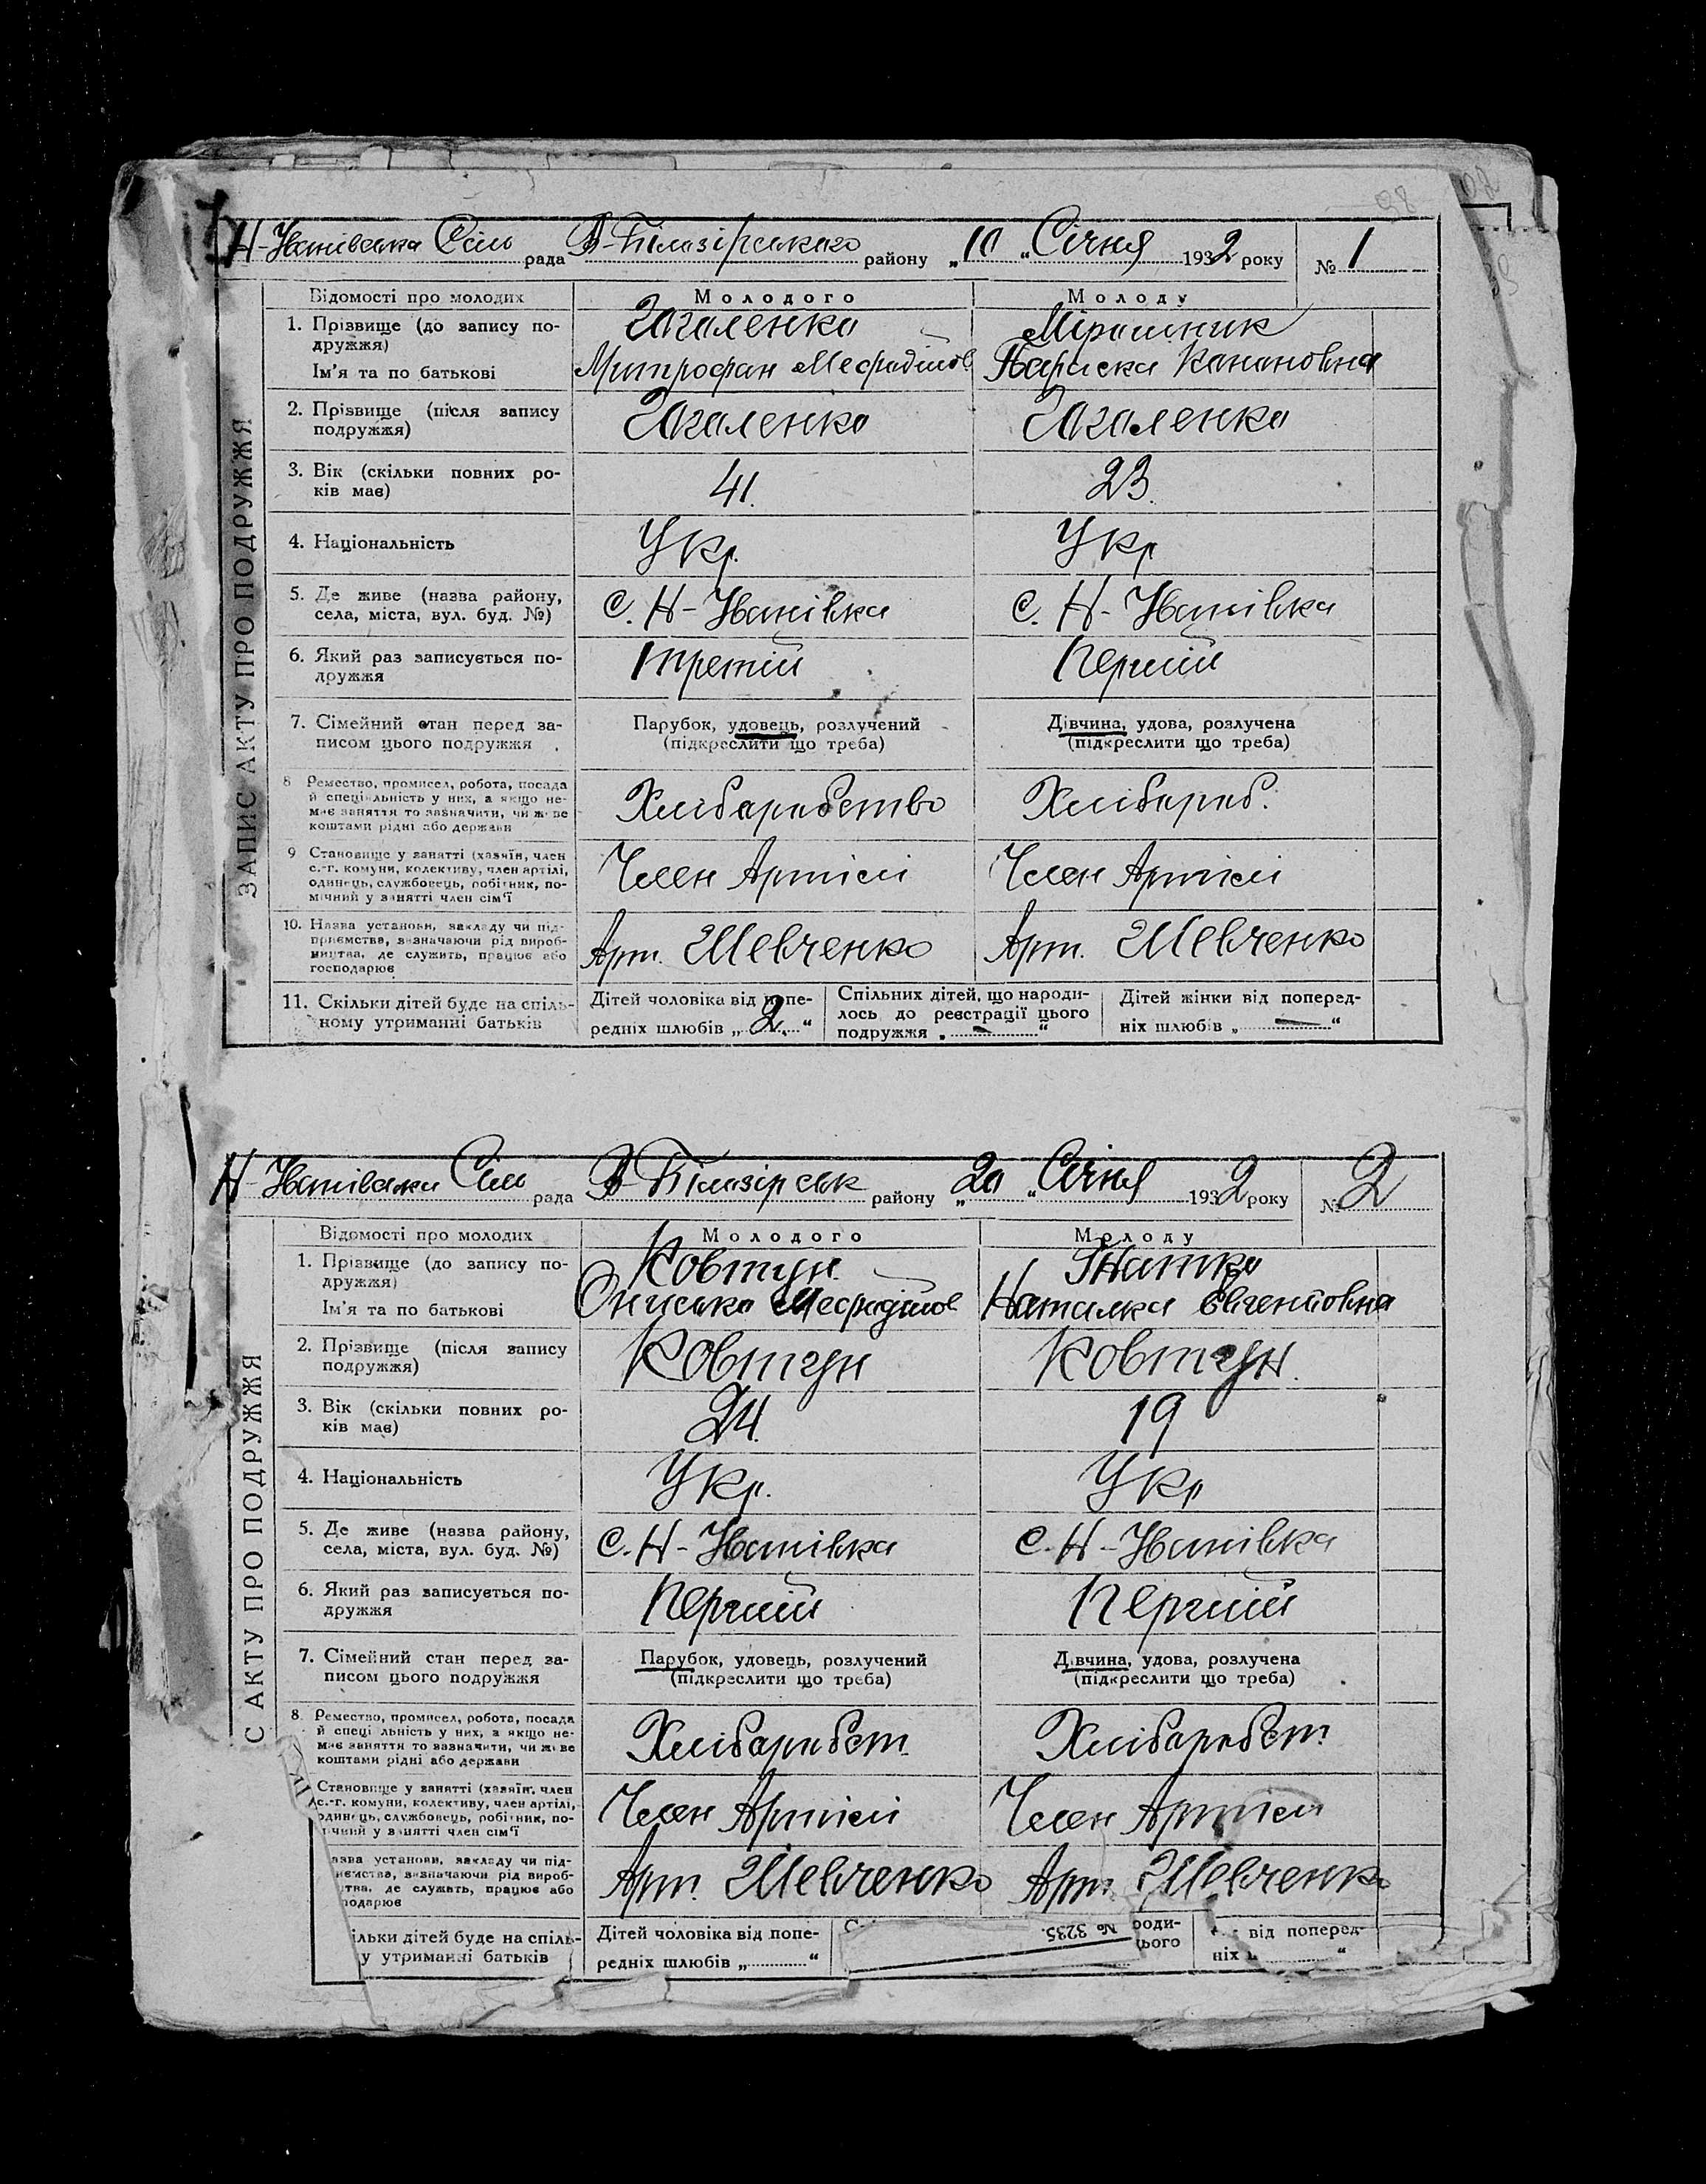 Н-Іванівська Сіль рада В-Білозірського району „10 „ Січня 1932 року № 1
ЗАПИС АКТУ ПРО ПОДРУЖЖЯ
Відомості про молодих Молодого Молоду
1. Прізвище (до запису по- Загаленко Мірошник
дружжя)
Ім'я та по батькові Митрофан Мефодійов Параска Кононовна
2. Прізвище (після запису Загаленко Загаленко
подружжя)
3. Вік (скільки повних ро- 41. 23.
ків має)
4. Національність Укр. Укр
5. Де живе (назва району, с. Н-Іванівка с. Н-Іванівка
села, міста, вул. буд. №)
6. Який раз записується по- третій Перший
дружжя
7. Сімейний стан перед за- Парубок, удовець, розлучений Дівчина, удова, розлучена
писом цього подружжя (підкреслити що треба) (підкреслити що треба)
8 Ремество, промисел, робота, посада Хліборобство Хлібороб.
й спеціяльність у них, а якщо не-
має заняття то зазначити, чи живе
коштами рідні або держави
9 Становище у занятті (хазяїн, член Член Артілі Член Артілі
с.-г. комуни, колективу, член артілі,
одинець, службовець, робітник, по-
мічний у занятті член сім'ї
10. Назва установи, закладу чи під- Арт. Шевченко Арт. Шевченко
приємства, зазначаючи рід вироб-
ництва, де служить, працює або
господарює
11. Скільки дітей буде на спіль- Дітей чоловіка від попе- Спільних дітей, що народи- Дітей жінки від поперед-
ному утриманні батьків редніх шлюбів „ 2. “ лось до реєстрації цього ніх шлюбів „ — “
подружжя „ — “
Н-Іванівська Сіль рада В-Білозірськ району „20 „ Січня 1932 року № 2
С АКТУ ПРО ПОДРУЖЖЯ
Відомості про молодих Молодого Молоду
1. Прізвище (до запису по- Ковтун Гнатко
дружжя)
Ім'я та по батькові Онисько Мефодійов Наталка
2. Прізвище (після запису Ковтун Ковтун.
подружжя)
3. Вік (скільки повних ро- 24. 19
ків має)
4. Національність Укр. Укр
5. Де живе (назва району, с. Н-Іванівка с. Н-Іванівка
села, міста, вул. буд. №)
6. Який раз записується по- Перший Перший
дружжя
7. Сімейний стан перед за- Парубок, удовець, розлучений Дівчина, удова, розлучена
писом цього подружжя (підкреслити що треба) (підкреслити що треба)
8. Ремество, промисел, робота, посада Хліборобст. Хліборобст.
й спеці льність у них, а якщо не-
має заняття то зазначити, чи живе
коштами рідні або держави
Становище у занятті (хазяїн, член Член Артілі Член Артілі
с.-г. комуни, колективу, член артілі,
одинець, службовець, робітник, по-
ічний у занятті член сім'ї
азва установи, закладу чи під- Арт. Шевченко Арт. Шевченко
иємства, зазначаючи рід вироб-
тва, де служить, працює або
подарює
ільки дітей буде на спіль- Дітей чоловіка від попе- № 3235. роди- від поперед-
у утриманні батьків редніх шлюбів „ “ ього ніх “